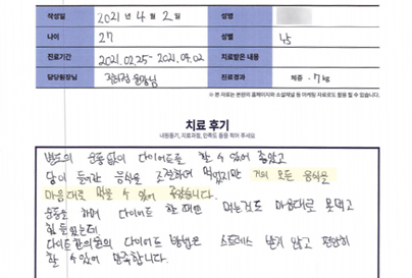 작성일 2021년 4월 2일 성명
나이 27 성별 남
진료기간 2021.02.25 - 2021.04.02 치료받은 내용
담당원장님 원장님 진료결과 체중 -7kg
※ 본 자료는 본원의 홈페이지와 소셜채널 등 마케팅 자료로도 활용 될 수 있습니다.
치료 후기
내원동기, 치료과정, 만족도 등을 적어 주세요
별도의 운동없이 다이어트를 할 수 있어 좋았고
당이 들어간 음식을 조절하며 먹었지만 거의 모든 음식을
마음대로 먹을 수 있어 좋았습니다.
운동을 하며 다이어트 할 때면 먹는것도 마음대로 못먹고
힘들었는데
다이트한의원의 다이어트 방법은 스트레스 받지 않고 편안히
할 수 있어 만족합니다.